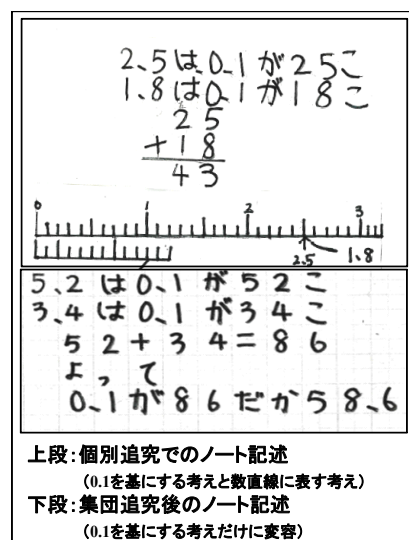 2.5は0.1が25こ
1.8は0.1が18こ
25
+18
43
0 1 2 3
2.5 1.8
5.2は0.1が52こ
3.4は0.1が34こ
52+34=86
よって
0.1が86だから58.6
上段:個別追究でのノート記述
(0.1を基にする考えと数直線に表す考え)
下段:集団追究後のノート記述
(0.1を基にする考えだけに変容)